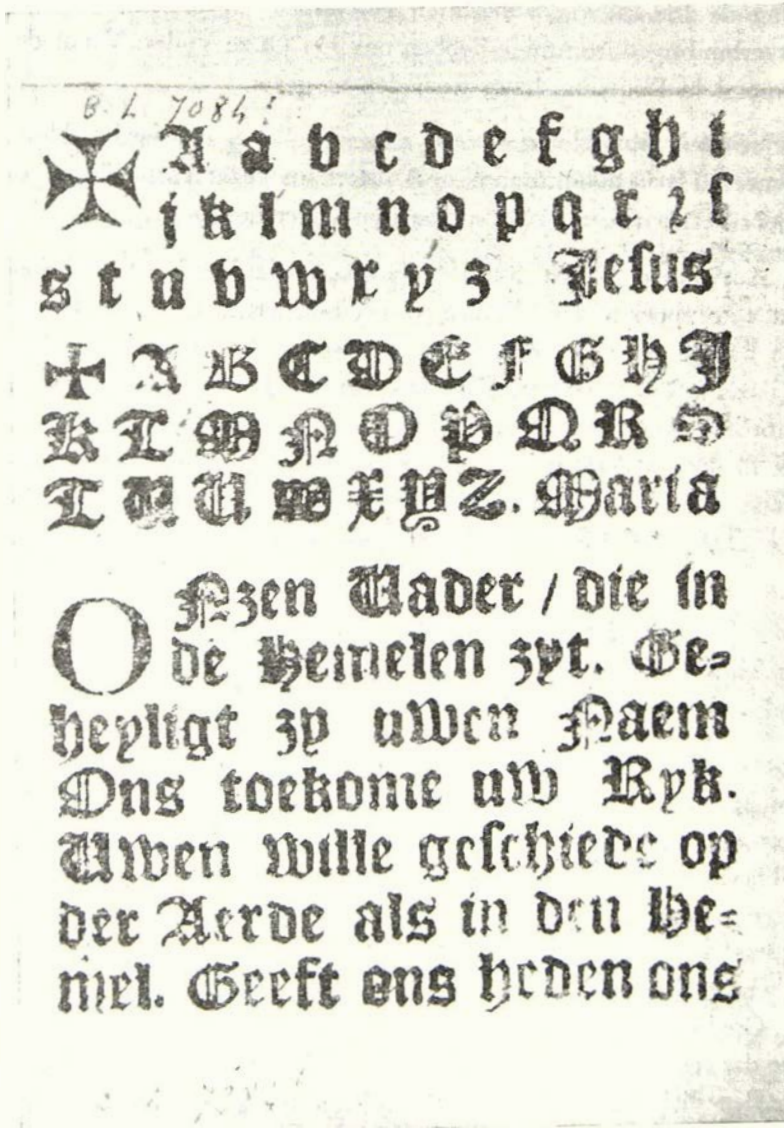 B. L. 7084:
✠ A a b c d e f g h i
j k l m n o p q r ꝛ ſ
s t u v w x y z Jeſus
✠ A B C D E F G H J
K L M N O P Q R S
T V U W X Y Z. Maria
ONzen Vader / die in
de Hemelen zyt. Ge⸗
heyligt zy uwen Naem
Ons toekome uw Ryk.
Uwen wille geſchiede op
der Aerde als in den He⸗
mel. Geeft ons heden ons